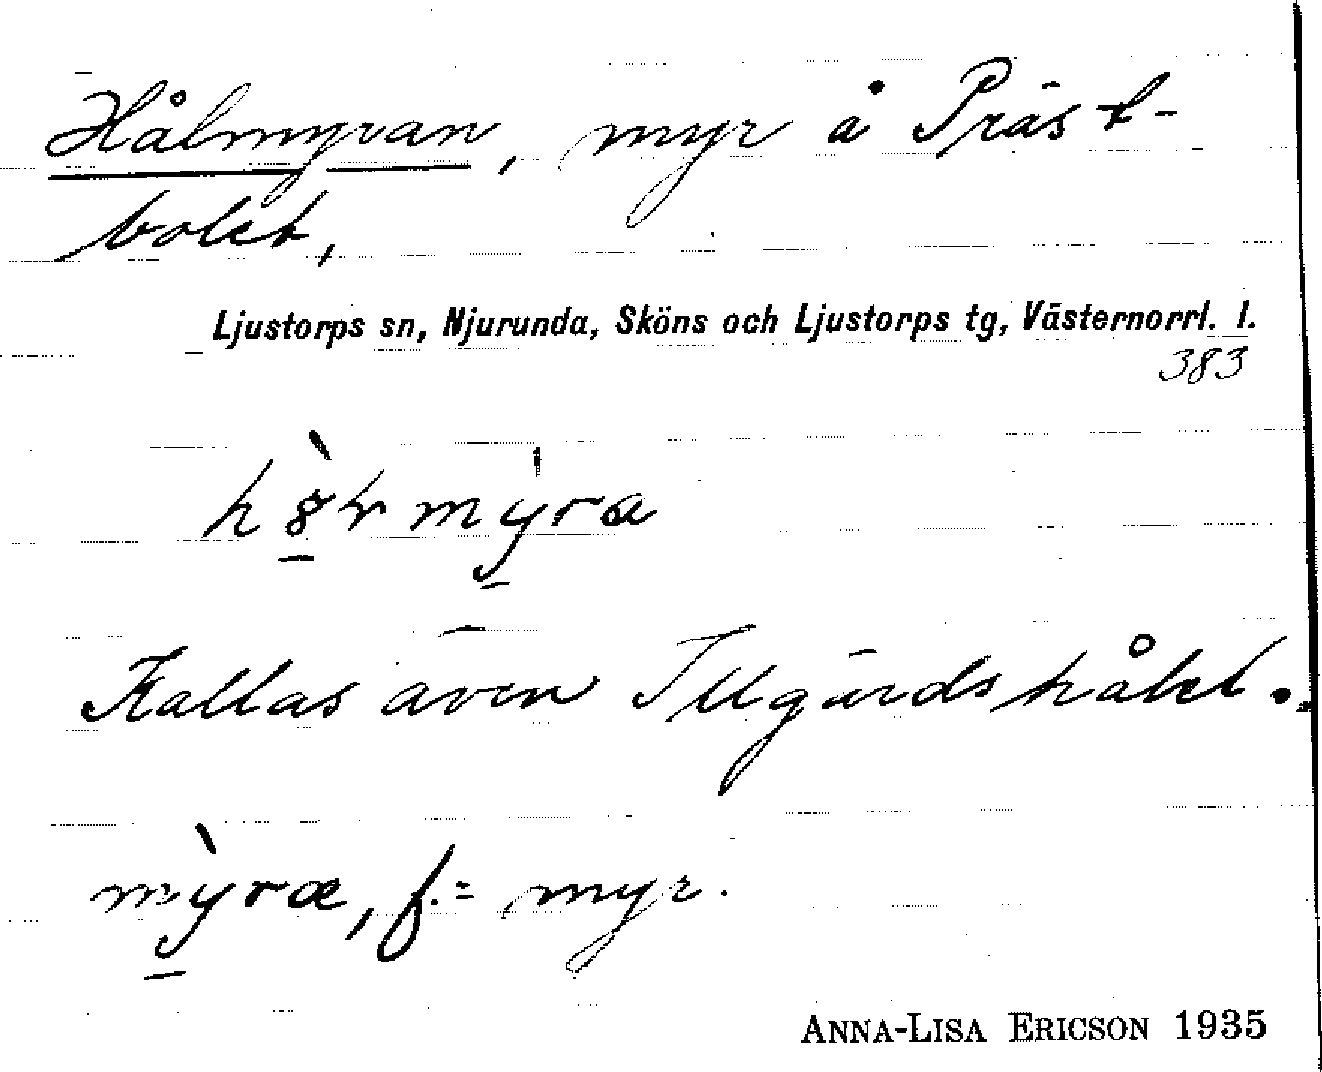 Hålmyran, myr å Präst-
bolet,
Ljustorps sn, Njurunda, Sköns och Ljustorps tg, Västernorrl. l.
383
Kallas även Illgärdshålet.
myræ, f. = myr.
ANNA-LISA ERICSON 1935